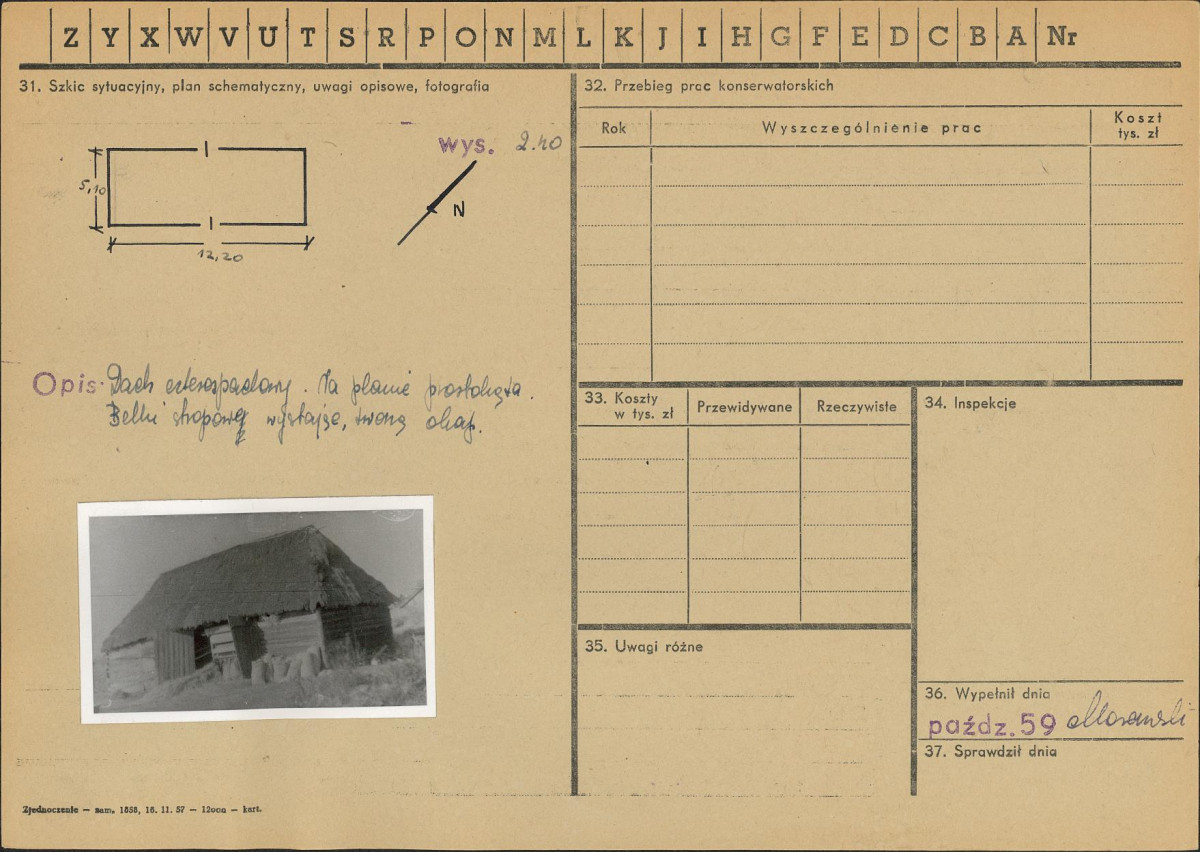 Z Y X W V U T S R P O N M L K J I H G F E D C B A Nr
31. Szkic sytuacyjny, plan schematyczny, uwagi opisowe, fotografia
wys. 2.40
5,10
N
12,20
Opis. Dach czterospadowy. Na planie prostokąta.
Belki stropowe wystające, tworzą okap.
Zjednoczenie — zam. 1858, 16. 11. 57 — 12000 — kart.
32. Przebieg prac konserwatorskich
Rok Wyszczególnienie prac Koszt tys. zł
33. Koszty w tys. zł Przewidywane Rzeczywiste
34. Inspekcje
35. Uwagi różne
36. Wypełnił dnia
paźdz. 59
37. Sprawdził dnia